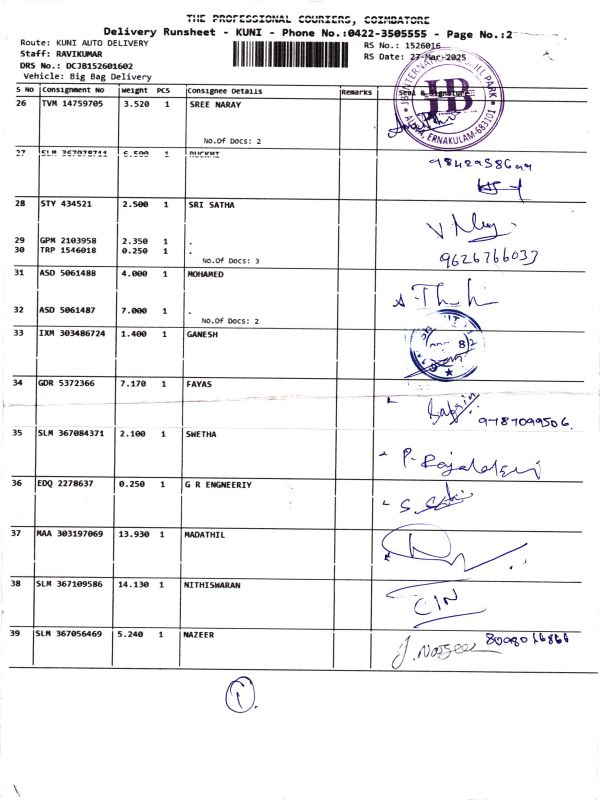 THE PROFESSIONAL COURIERS, COIMBATORE
Delivery Runsheet - KUNI - Phone No.:0422-3505555 - Page No.:2
Route: KUNI AUTO DELIVERY
RS No.: 1526016
Staff: RAVIKUMAR
RS Date: 27-Mar-2025
DRS No.: DCJB152601602
Vehicle: Big Bag Delivery
S NO Consignment No Weight PCS Consignee Details Remarks Seal & Signature
26 TVM 14759705 3.520 1 SREE NARAY
No.Of Docs: 2
JB
ALUVA, ERNAKULAM-683101
27 SLM 367078711 6.500 1
28 STY 434521 2.500 1 SRI SATHA
29 GPM 2103958 2.350 1 .
30 TRP 1546018 0.250 1 .
No.Of Docs: 3
9626766033
31 ASD 5061488 4.000 1 MOHAMED
32 ASD 5061487 7.000 1 .
No.Of Docs: 2
33 IXM 303486724 1.400 1 GANESH
34 GDR 5372366 7.170 1 FAYAS
9787099506.
35 SLM 367084371 2.100 1 SWETHA
36 EDQ 2278637 0.250 1 G R ENGNEERIY
37 MAA 303197069 13.930 1 MADATHIL
38 SLM 367109586 14.130 1 NITHISWARAN
39 SLM 367056469 5.240 1 NAZEER
J. Nazeer
1